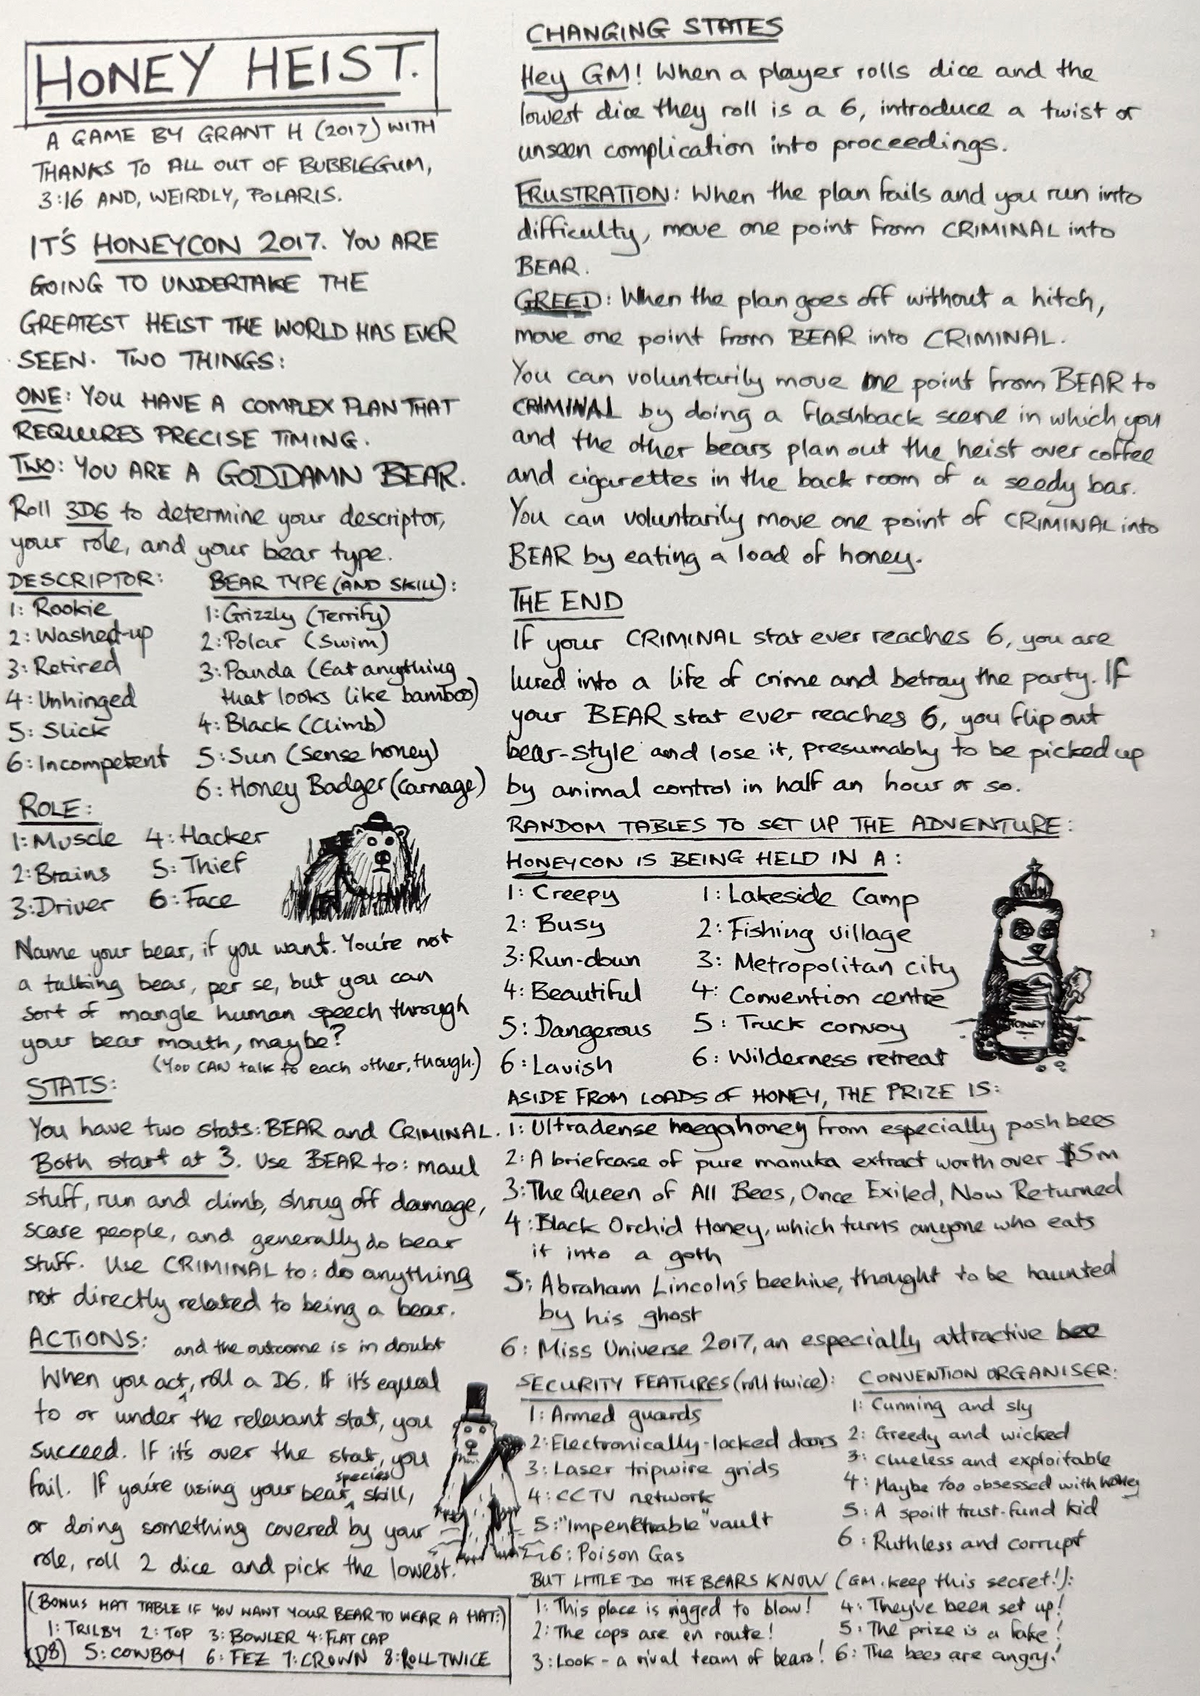 HONEY HEIST.
A GAME BY GRANT H (2017) WITH
THANKS TO ALL OUT OF BUBBLEGUM,
3:16 AND, WEIRDLY, POLARIS.
IT'S HONEYCON 2017. YOU ARE
GOING TO UNDERTAKE THE
GREATEST HEIST THE WORLD HAS EVER
SEEN. TWO THINGS:
ONE: YOU HAVE A COMPLEX PLAN THAT
REQUIRES PRECISE TIMING.
TWO: YOU ARE A GODDAMN BEAR.
Roll 3D6 to determine your descriptor,
your role, and your bear type.
DESCRIPTOR:
1: Rookie
2: Washed-up
3: Retired
4: Unhinged
5: Slick
6: Incompetent
BEAR TYPE (AND SKILL):
1: Grizzly (Terrify)
2: Polar (Swim)
3: Panda (Eat anything
that looks like bamboo)
4: Black (Climb)
5: Sun (Sense honey)
6: Honey Badger (carnage)
ROLE:
1: Muscle
2: Brains
3: Driver
4: Hacker
5: Thief
6: Face
Name your bear, if you want. You're not
a talking bear, per se, but you can
sort of mangle human speech through
your bear mouth, maybe?
(You CAN talk to each other, though.)
STATS:
You have two stats: BEAR and CRIMINAL.
Both start at 3. Use BEAR to: maul
stuff, run and climb, shrug off damage,
scare people, and generally do bear
stuff. Use CRIMINAL to: do anything
not directly related to being a bear.
ACTIONS:
and the outcome is in doubt
When you act, roll a D6. If it's equal
to or under the relevant stat, you
succeed. If it's over the stat, you
fail. If you're using your bear species skill,
or doing something covered by your
role, roll 2 dice and pick the lowest.
(BONUS HAT TABLE IF YOU WANT YOUR BEAR TO WEAR A HAT:)
1: TRILBY 2: TOP 3: BOWLER 4: FLAT CAP
(D8) 5: COWBOY 6: FEZ 7: CROWN 8: ROLL TWICE
CHANGING STATES
Hey GM! When a player rolls dice and the
lowest dice they roll is a 6, introduce a twist or
unseen complication into proceedings.
FRUSTRATION: When the plan fails and you run into
difficulty, move one point from CRIMINAL into
BEAR.
GREED: When the plan goes off without a hitch,
move one point from BEAR into CRIMINAL.
You can voluntarily move one point from BEAR to
CRIMINAL by doing a flashback scene in which you
and the other bears plan out the heist over coffee
and cigarettes in the back room of a seedy bar.
You can voluntarily move one point of CRIMINAL into
BEAR by eating a load of honey.
THE END
If your CRIMINAL stat ever reaches 6, you are
lured into a life of crime and betray the party. If
your BEAR stat ever reaches 6, you flip out
bear-style and lose it, presumably to be picked up
by animal control in half an hour or so.
RANDOM TABLES TO SET UP THE ADVENTURE:
HONEYCON IS BEING HELD IN A:
1: Creepy
2: Busy
3: Run-down
4: Beautiful
5: Dangerous
6: Lavish
1: Lakeside Camp
2: Fishing village
3: Metropolitan city
4: Convention centre
5: Truck convoy
6: Wilderness retreat
HONEY
ASIDE FROM LOADS OF HONEY, THE PRIZE IS:
1: Ultradense megahoney from especially posh bees
2: A briefcase of pure manuka extract worth over $5m
3: The Queen of All Bees, Once Exiled, Now Returned
4: Black Orchid Honey, which turns anyone who eats
it into a goth
5: Abraham Lincoln's beehive, thought to be haunted
by his ghost
6: Miss Universe 2017, an especially attractive bee
SECURITY FEATURES (roll twice):
1: Armed guards
2: Electronically-locked doors
3: Laser tripwire grids
4: CCTV network
5: "Impenetrable" vault
6: Poison Gas
CONVENTION ORGANISER:
1: Cunning and sly
2: Greedy and wicked
3: Clueless and exploitable
4: Maybe too obsessed with honey
5: A spoilt trust-fund kid
6: Ruthless and corrupt
BUT LITTLE DO THE BEARS KNOW (GM: keep this secret!):
1: This place is rigged to blow!
2: The cops are en route!
3: Look - a rival team of bears!
4: They've been set up!
5: The prize is a fake!
6: The bees are angry!